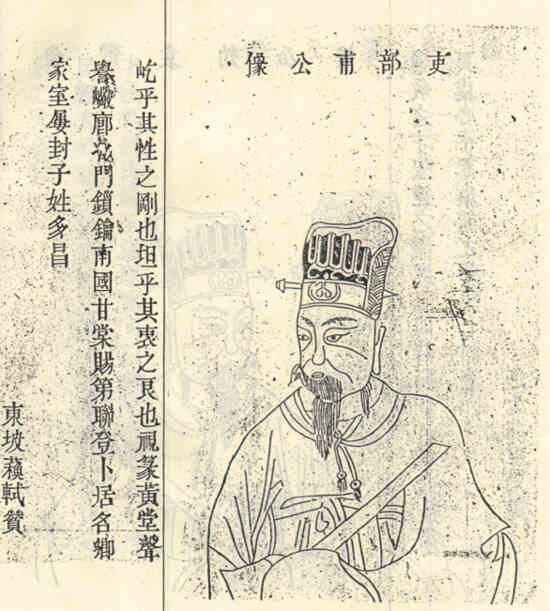 吏部甫公像
屹乎其性之剛也坦乎其衷之良也視篆黃堂聲
譽廊門鎖鑰南國甘棠賜第聯登卜居名鄉
家室屢封子姓多昌
東坡蘓軾贊